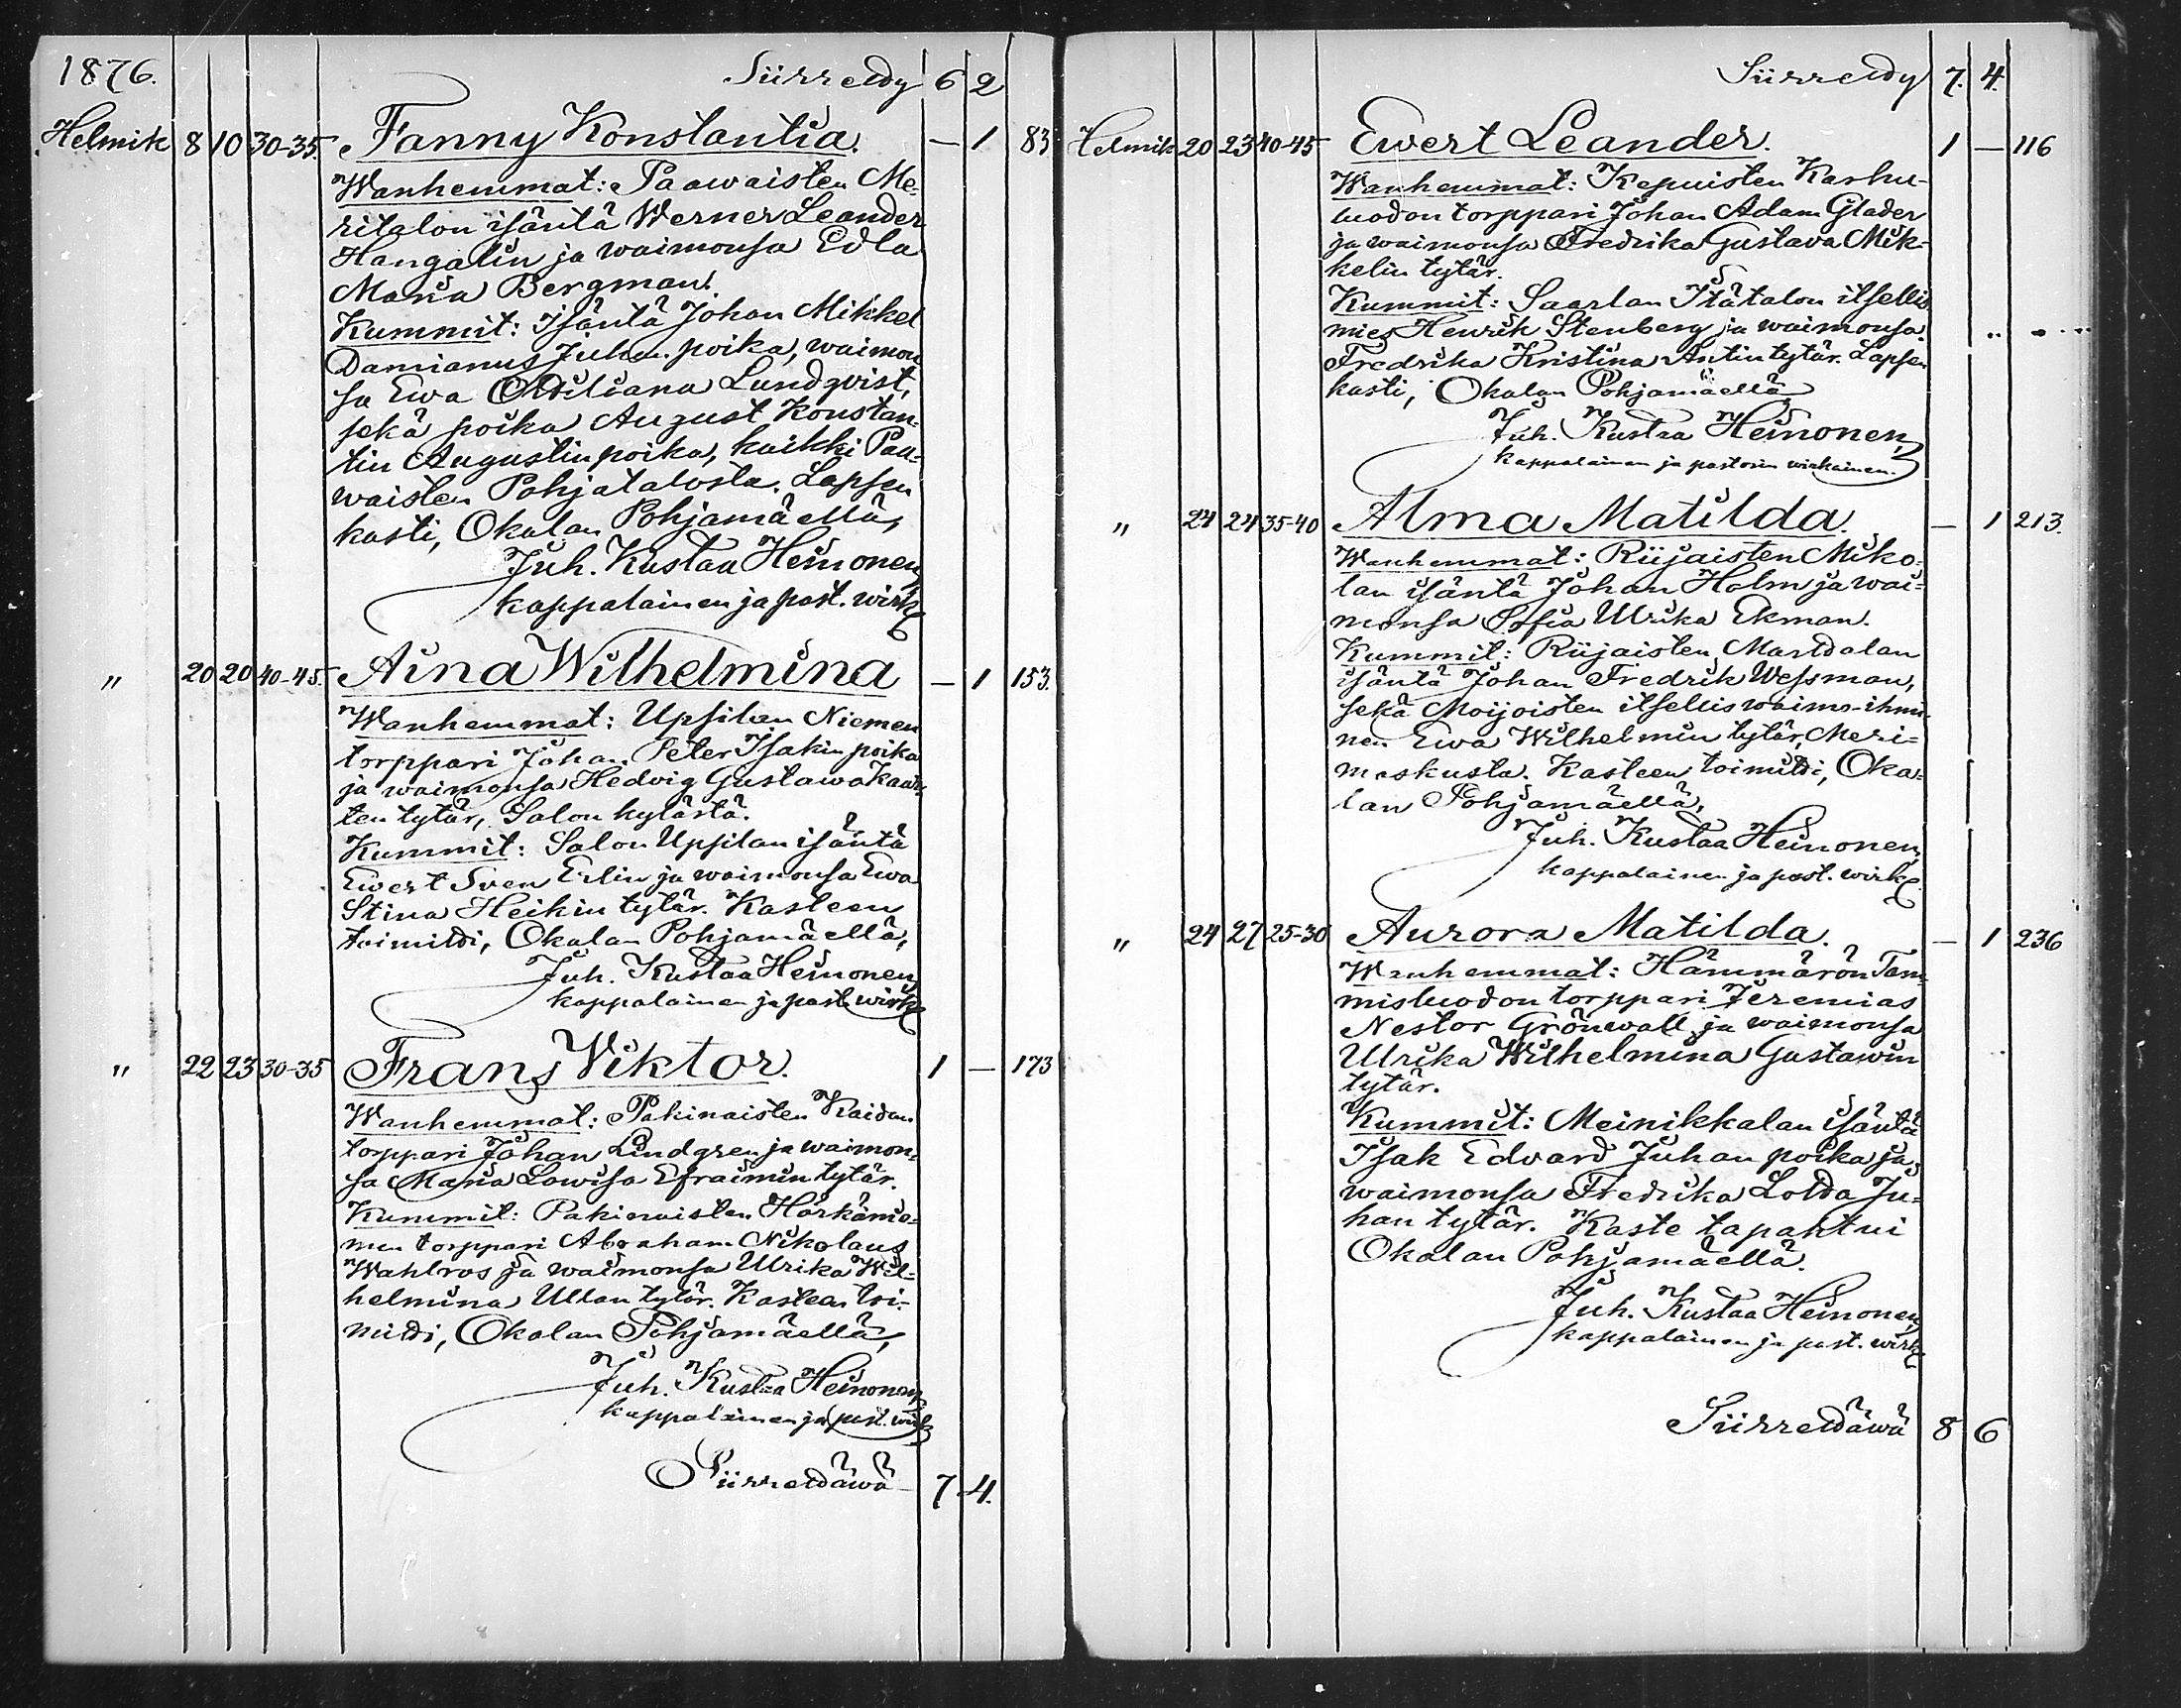 1876. Siirretty 6 2
Helmik 8 10 30-35. Fanny Konstantia. — 1 83
Wanhemmat: Paawaisten Me-
ritalon isäntä Werner Leander
Hangalin ja waimonsa Edla
Maria Bergman.
Kummit: Isäntä Johan Mikkel
Damianus Juhan poika, waimon
sa Ewa Lundqvist,
sekä poika August Konstan-
tin Augustin poika, kaikki Paa-
waisten Pohjatalosta. Lapsen
kasti, Okalan Pohjamäellä,
Juh. Kustaa Heinonen,
kappalainen ja past. wirk.
" 20 20 40-45. Aina Wilhelmina — 1 153.
Wanhemmat: Upsilan Niemen
torppari Johan Peter Isakin poika
ja waimonsa Hedvig Gustawa Kaar-
ten tytär, Salon kylästä.
Kummit: Salon Upsilan isäntä
Ewert Sven Erlin ja waimonsa Ewa
Stina Heikin tytär. Kasteen
toimitti, Okalan Pohjamäellä,
Juh. Kustaa Heinonen,
kappalainen ja past. wirk.
" 22 23 30-35 Frans Viktor. 1 — 173
Wanhemmat: Pakinaisten Kaidan
torppari Johan Lindgren ja waimon-
sa Maria Lowisa Efraimin tytär.
Kummit: Pakinaisten Härkämie-
men torppari Abraham Nikolaus
Wahlros ja waimonsa Ulrika Wil-
helmina Ullan tytär. Kasteen toi-
mitti, Okalan Pohjamäellä,
Juh. Kustaa Heinonen,
kappalainen ja past. wirk.
Siirrettäwä 7 4.
Siirretty 7. 4.
Helmik 20 23 40-45 Ewert Leander. 1 — 116
Wanhemmat: Kepuisten Karhu-
luodon torppari Johan Adam Glader
ja waimonsa Fredrika Gustava Mik-
kelin tytär.
Kummit: Saarlan Itätalon itsellis
mies Henrik Stenberg ja waimonsa
Fredrika Kristina Antin tytär. Lapsen
kasti, Okalan Pohjamäellä,
Juh. Kustaa Heinonen,
kappalainen ja pastorin wirkainen.
" 24 24 35-40 Alma Matilda. — 1 213.
Wanhemmat: Riijaisten Miko-
lan isäntä Johan Holm ja wai-
monsa Sofia Ulrika Ekman.
Kummit: Riijaisten Marttalan
isäntä Johan Fredrik Wessman,
sekä Moijoisten itsellis waimo-ihmi-
nen Ewa Wilhelmiin tytär, Meri-
maskusta. Kasteen toimitti, Oka-
lan Pohjamäellä,
Juh. Kustaa Heinonen,
kappalainen ja past. wirk.
" 24 27 25-30 Aurora Matilda. — 1 236
Wanhemmat: Hämmärön Tam-
misluodon torppari Jeremias
Nestor Grönwall ja waimonsa
Ulrika Wilhelmina Gustawin
tytär.
Kummit: Meinikkalan isäntä
Isak Edvard Juhan poika ja
waimonsa Fredrika Lotta Ju-
han tytär. Kaste tapahtui
Okalan Pohjamäellä.
Juh. Kustaa Heinonen,
kappalainen ja past. wirk.
Siirrettäwä 8 6